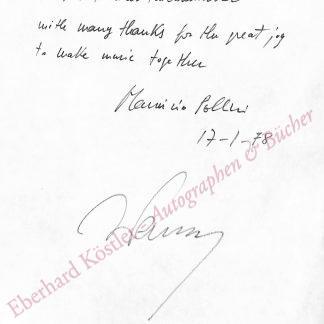 with many thanks for the great joy
to make music together
Maurizio Pollini
17-1-78
Eberhard Köstler Autographen & Bücher